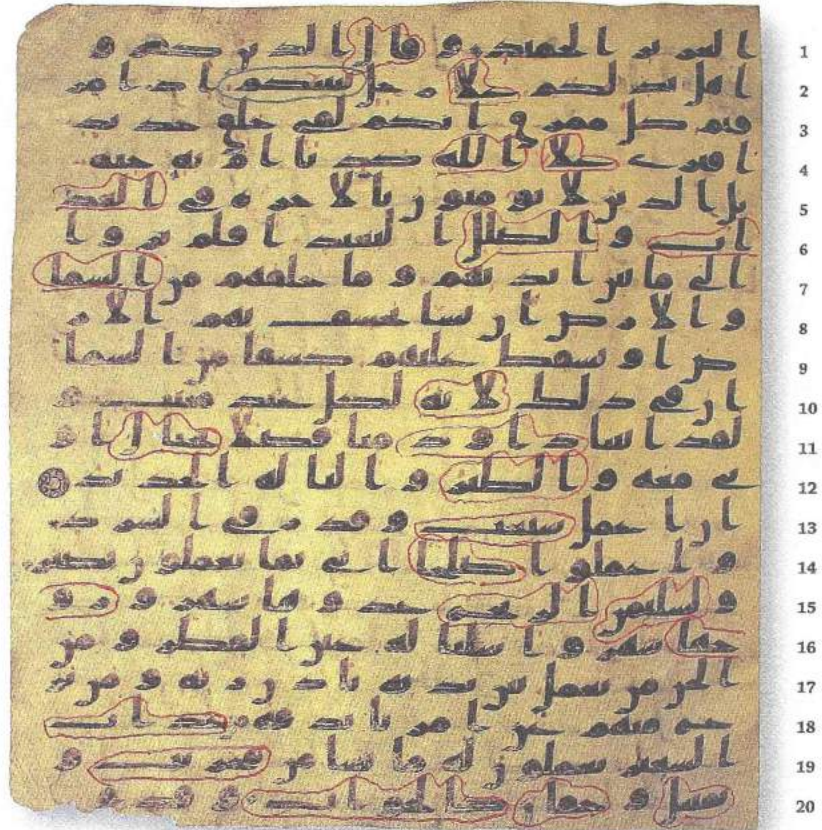 العزيز الحميد و قال الذين كفرو
ا هل ندلكم علا رجل ينبئكم اذا مز
قتم كل ممزق انكم لفي خلق جديد
افترى علا الله كذبا ام به جنه
بل الذين لا يومنون بالاخره في العذ
اب والضلل البعيد افلم يروا
الى ما بين ايديهم وما خلفهم من السما
والارض ان نشا نخسف بهم الار
ض او نسقط عليهم كسفا من السما
ان في ذلك لايه لكل عبد منيب و
لقد اتينا داود منا فضلا يجبال او
بي معه والطير والنا له الحديد
ان اعمل سبغت وقدر في السرد
واعملوا صلحا اني بما تعملون بصير
ولسليمن الريح غدوها شهر ورو
حها شهر واسلنا له عين القطر ومن
الجن من يعمل بين يديه باذن ربه ومن يز
غ منهم عن امرنا نذقه من عذاب
السعير يعملون له ما يشا من محريب و
تمثيل وجفان كالجواب وقدور
1
2
3
4
5
6
7
8
9
10
11
12
13
14
15
16
17
18
19
20